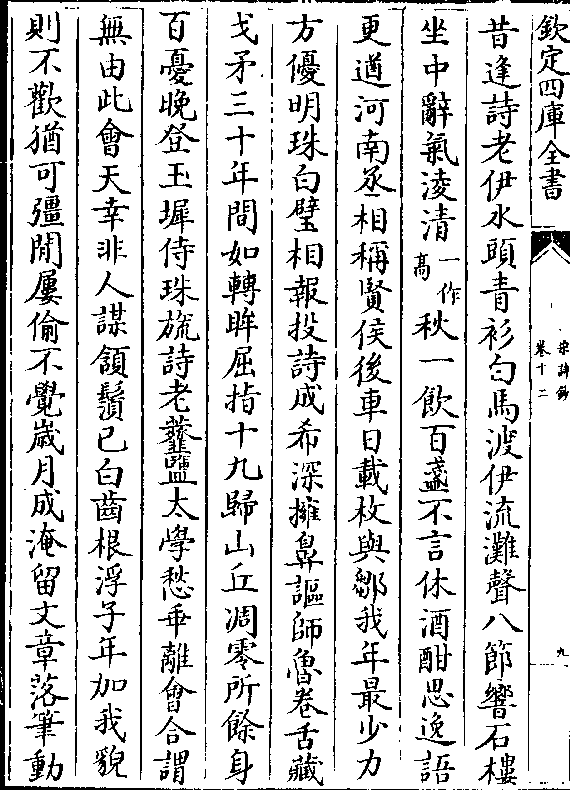 欽定四庫全書
宋詩鈔
卷十二
九
昔逢詩老伊水頭青衫白馬渡伊流灘聲八節響石樓
坐中辭氣淩清一作高秋一飲百盞不言休酒酣思逸語
更遒河南丞相稱賢侯後車日載枚與鄒我年最少力
方優明珠白璧相報投詩成希深擁鼻謳師魯卷舌藏
戈矛三十年間如轉眸屈指十九歸山丘凋零所餘身
百憂晚登玉墀侍珠旒詩老虀鹽太學愁乖離會合謂
無由此會天幸非人謀頷鬚已白齒根浮子年加我貌
則不歡猶可彊閒屢偷不覺嵗月成淹留文章落筆動